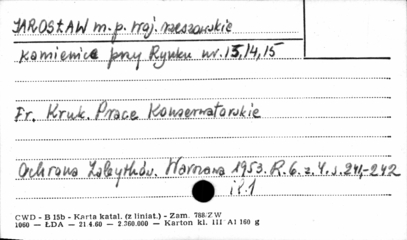 JAROSŁAW m.p. woj. rzeszowskie
kamienice przy Rynku nr. 13, 14, 15
Fr. Kruk. Prace Konserwatorskie
Ochrona Zabytków. Warszawa 1953. R. 6. z. 4. s. 241-242
il. 1
CWD - B 15b - Karta katal. (z liniat.) - Zam. 788/ZW
1060 — ŁDA — 21 4.60 — 2 360.000 — Karton kl. III A1 160 g